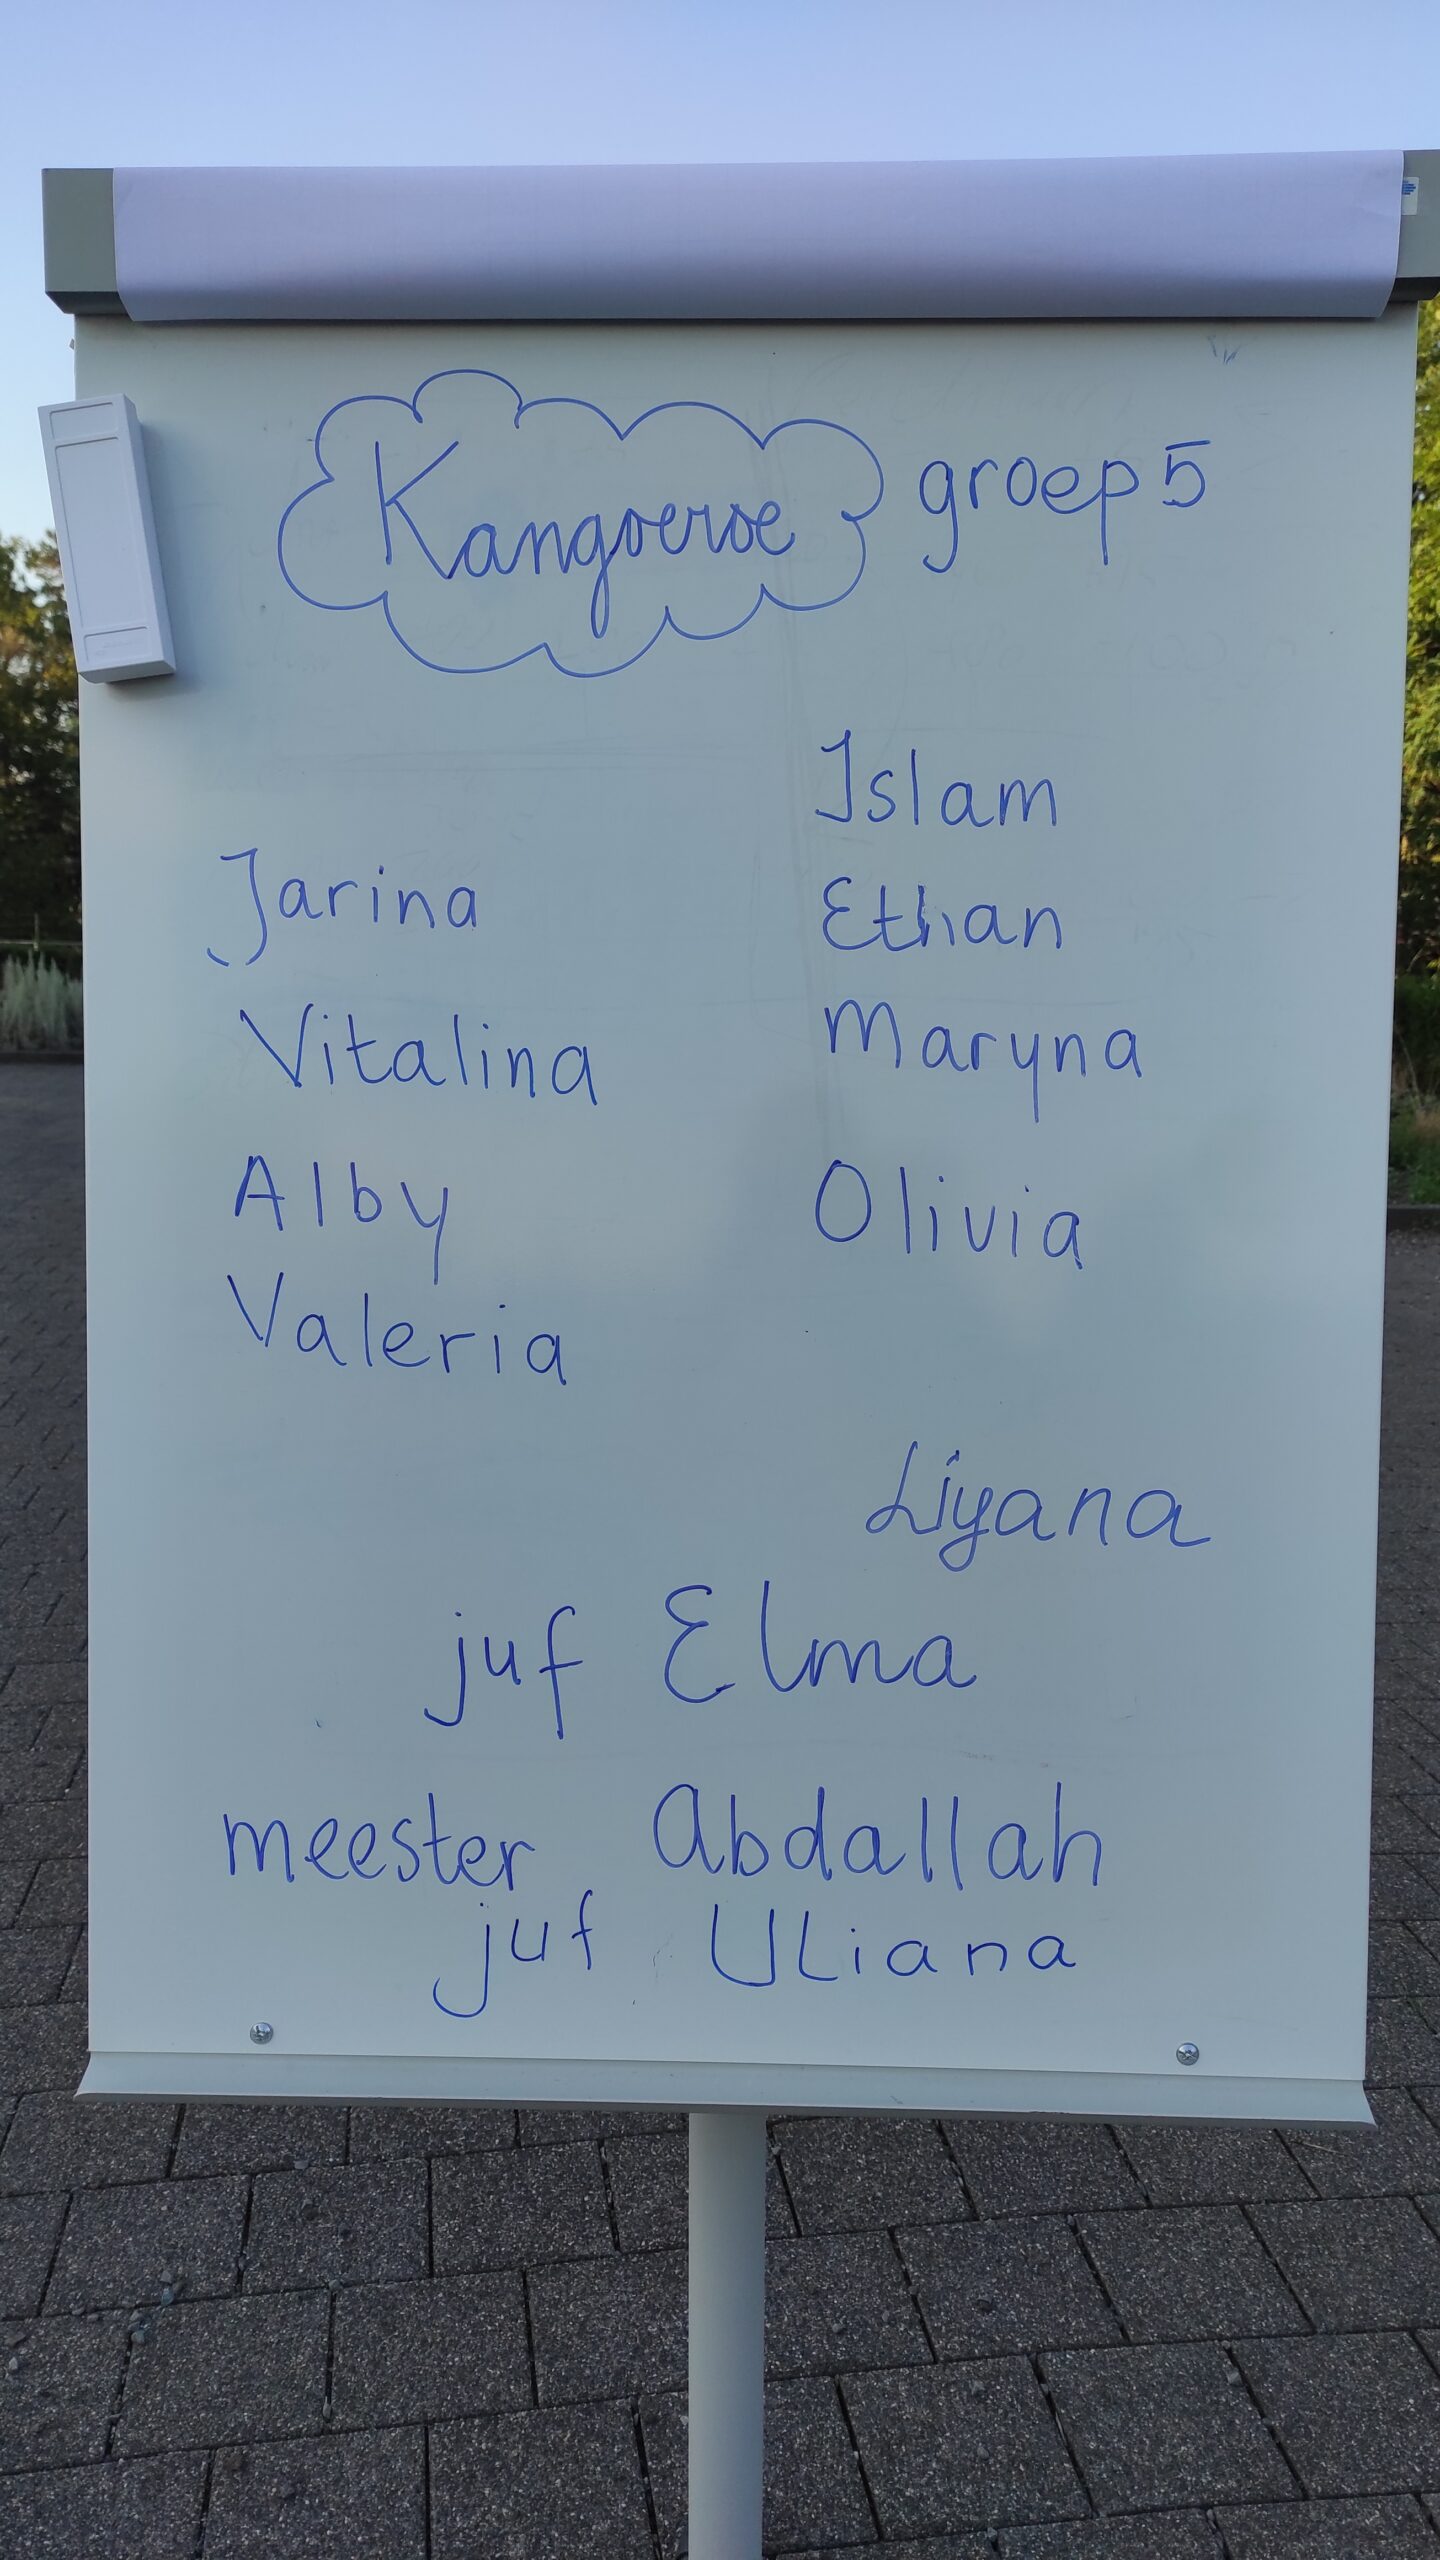 Kangoeroe groep 5
Jarina
Vitalina
Alby
Valeria
Islam
Ethan
Maryna
Olivia
Liyana
juf Elma
meester Abdallah
juf Uliana